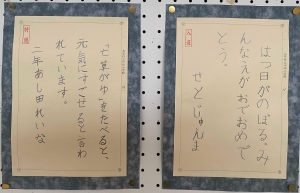 入選
はつ日がのぼる、み
んなえがおでおめで
とう。
せと じゅんま
特選
「七草がゆ」をたべると、
元気にすごせると言わ
れています。
二年 あし田 れいな